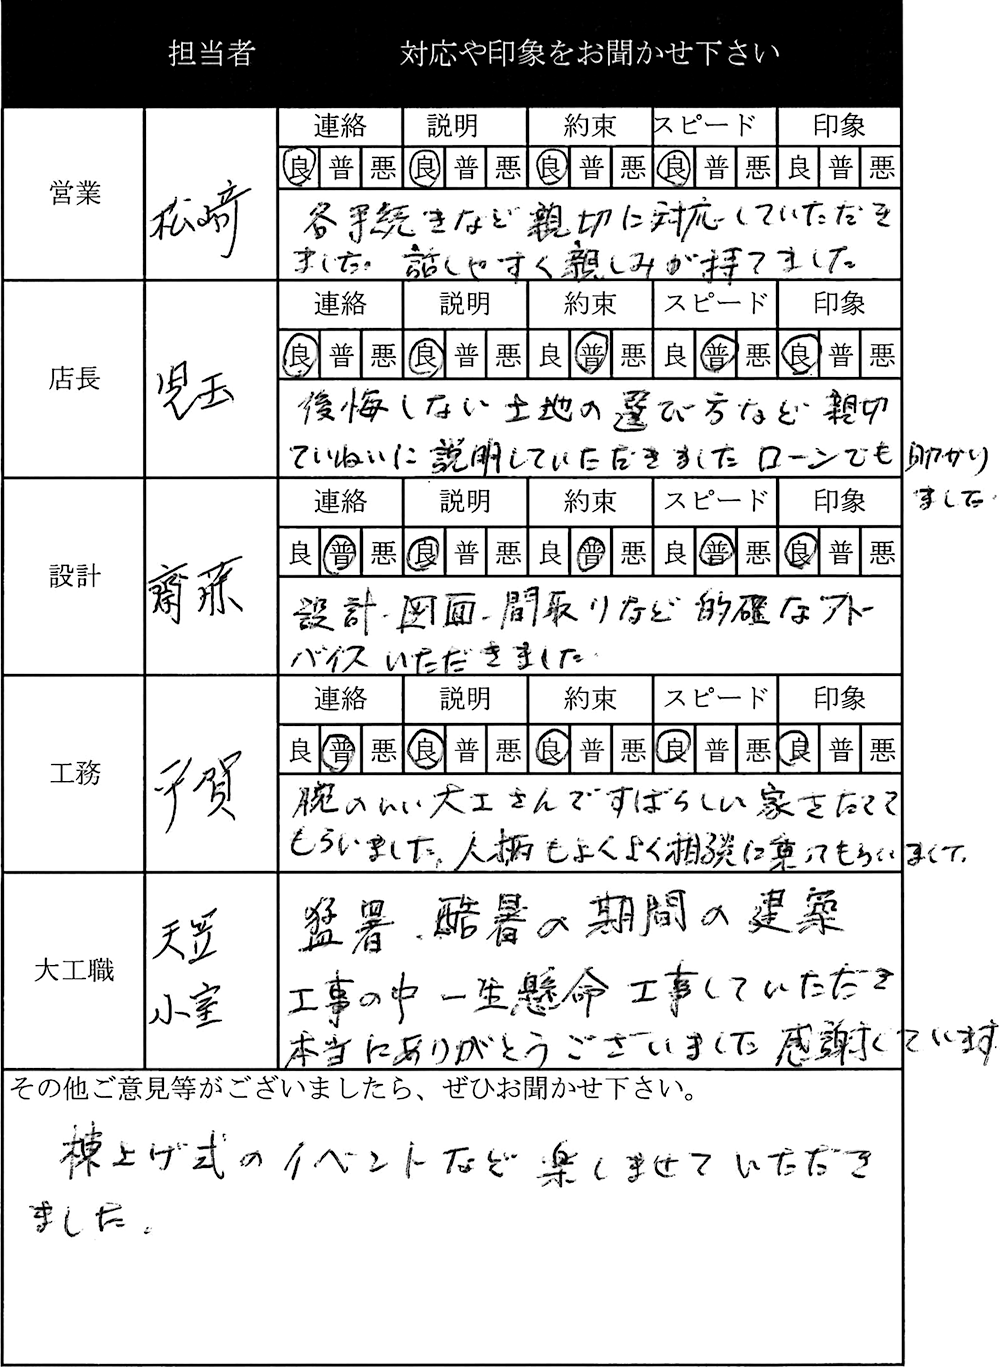 担当者 対応や印象をお聞かせ下さい
連絡 説明 約束 スピード 印象
良 普 悪 良 普 悪 良 普 悪 良 普 悪 良 普 悪
営業 松﨑
各手続きなど親切に対応していただき
ました。話しやすく親しみが持てました
連絡 説明 約束 スピード 印象
良 普 悪 良 普 悪 良 普 悪 良 普 悪 良 普 悪
店長 児玉
後悔しない土地の選び方など親切
ていねいに説明していただきました ローンでも助かり
ました.
連絡 説明 約束 スピード 印象
良 普 悪 良 普 悪 良 普 悪 良 普 悪 良 普 悪
設計 齋藤
設計.図面.間取りなど的確なアド
バイスいただきました.
連絡 説明 約束 スピード 印象
良 普 悪 良 普 悪 良 普 悪 良 普 悪 良 普 悪
工務 平賀
腕のいい大工さんですばらしい家をたてて
もらいました。人柄もよくよく相談に乗ってもらいまして。
猛暑.酷暑の期間の建築
大工職 天笠 小室
工事の中一生懸命工事していただき
本当にありがとうございました 感謝しています
その他ご意見等がございましたら、ぜひお聞かせ下さい。
棟上げ式のイベントなど楽しませていただき
ました。